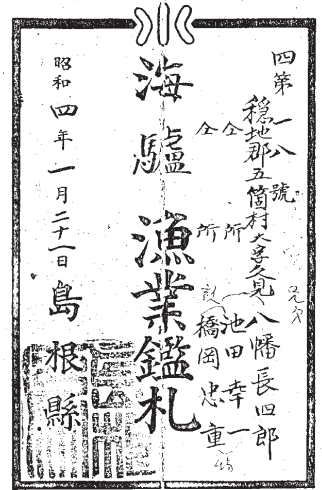 四第一八號
穏地郡五箇村大字久見 八幡長四郎
仝 所 池田幸一
仝 所 橋岡忠重
海驢 漁業鑑札
昭和四年一月二十一日
島根縣